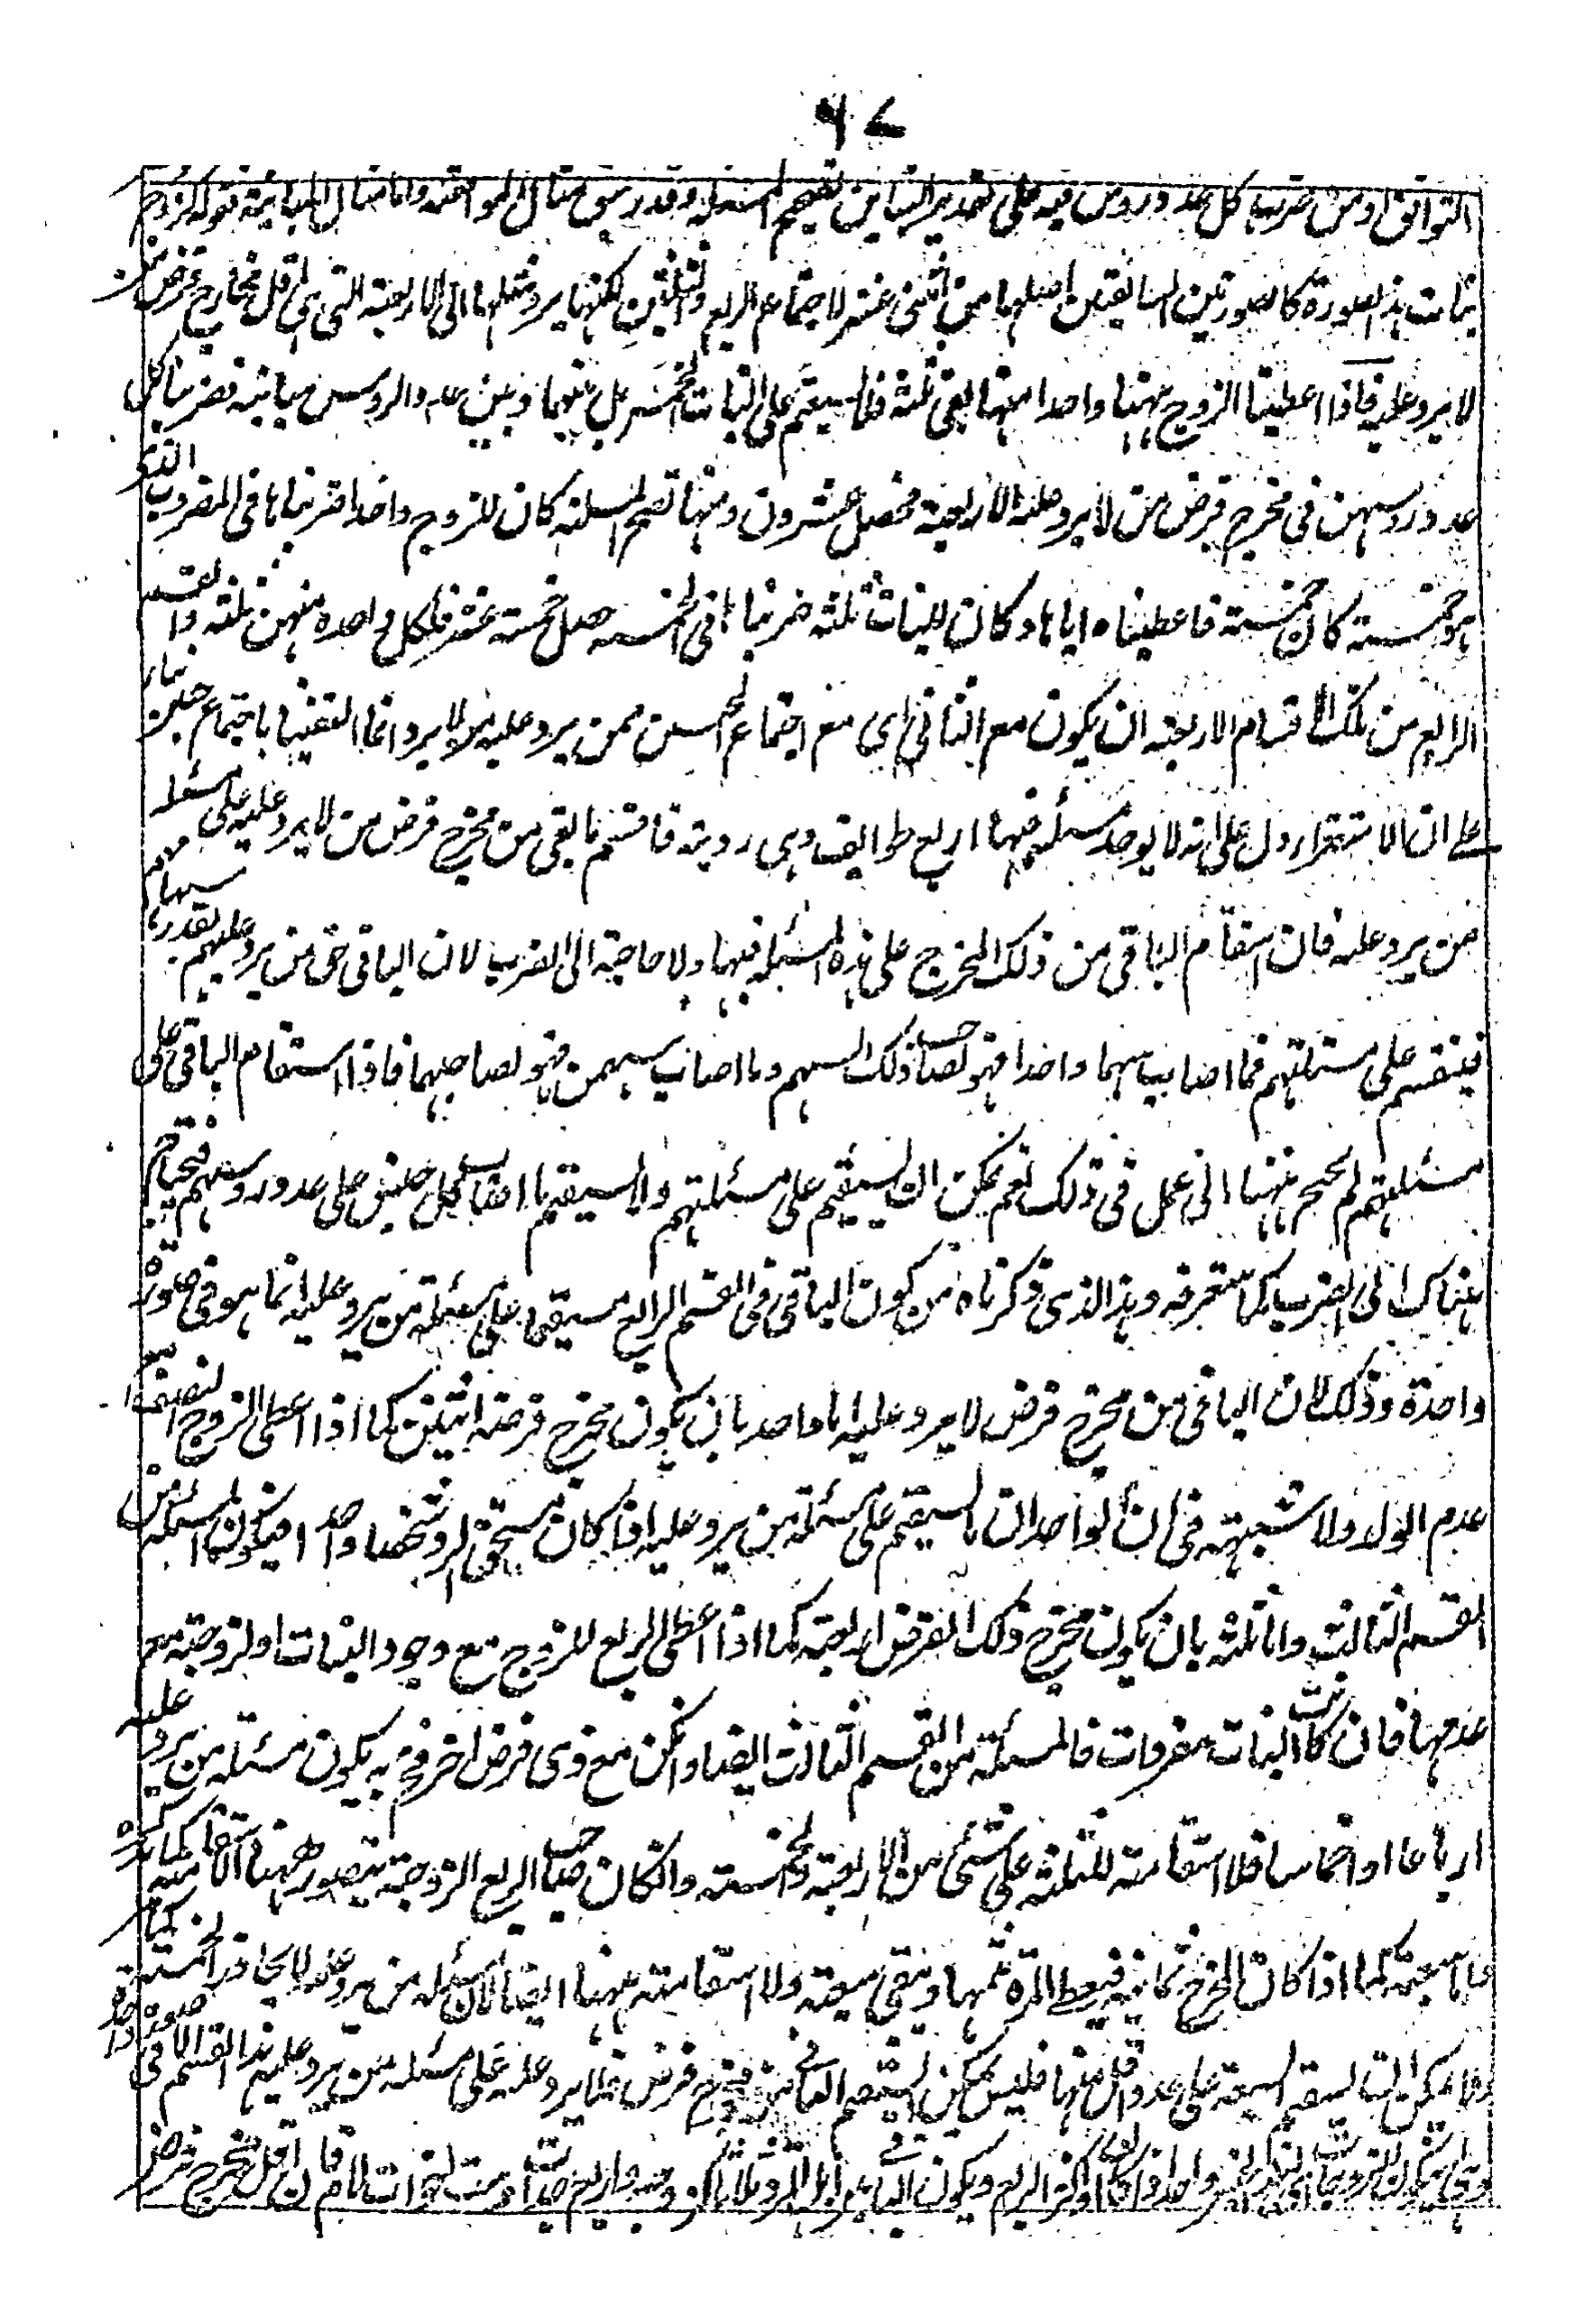 ٩٧
التوافق او من ضرب كل عدد رؤس فيه على تقدير التباين تصحيح المسئله وقد سبق مثال الموافقة واما مثال المباينة فقوله كزوج وخمس
بنات هذه الصورة كالصورتين السابقتين اصلها من اثنى عشر لاجتماع الربع والثلثين لكنها يرد مثلها الى الاربعة التى هى اقل مخارج فرض من
لا يرد عليه فاذا اعطينا الزوج ههنا واحدا منها بقى ثلثه فلا يستقيم على البنات الخمس بل بينها وبين عدد الروس مباينة فضربنا كل
عدد روسهن فى مخرج فرض من لا يرد عليه الاربعة فحصل عشرون ومنها تصح المسئله كان للزوج واحدا ضربناها فى المضروب الذى
هو خمسة كان خمسة فاعطيناه اياها وكان للبنات ثلثه ضربناها فى الخمسه حصل خمسة عشر فلكل واحدة منهن ثلثه والقسم
الرابع من تلك الاقسام الاربعة ان يكون مع الثانى اى مع اجتماع الجنسين ممن يرد عليه من لا يرد وانما اكتفينا باجتماع جنسين بناء
على ان الاستقراء دل على انه لا يوجد مسئلة فيها اربع طوائف وهى ردية فاقسم ما بقى من مخرج فرض من لا يرد عليه على مسئله
من يرد عليه فان استقام الباقى من ذلك المخرج على هذه المسئله فبها ولا حاجة الى الضرب لان الباقى حق من يرد عليهم بقدر سهامهم
فينقسم على مسئلتهم فما اصاب سهما واحدا فهو لصاحب ذلك السهم وما اصاب سهمين فهو لصاحبهما فاذا استقام الباقى على
مسئلتهم لم يحتج ههنا الى عمل فى ذلك نعم يمكن ان يستقيم على مسئلتهم ولا يستقيم ما اصاب كل فريق على عدد روسهم فيحتاج
هناك الى الضرب كما ستعرفه وهذا الذى ذكرناه من كون الباقى فى القسم الرابع مستقيما على مسئلة من يرد عليه انما هو فى صورة
واحدة وذلك لان الباقى من مخرج فرض لا يرد عليه اما واحد بان يكون مخرج فرضه اثنين كما اذا اعطى الزوج النصف مع
عدم الولد ولا شبهة فى ان الواحد انما يستقيم على مسئلة من يرد عليه اذا كان مستحق الرد شخصا واحدا فيكون المسئله من
القسم الثالث واما ثلثه بان يكون مخرج ذلك الفرض اربعة كما اذا اعطى الربع للزوج مع وجود البنات او لزوجته مع
عدمها فان كانت البنات مفرقات فالمسئلة من القسم الثالث ايضا وان كن مع ذى فرض اخر فح يكون مسئلة من يرد عليه
ارباعا او اخماسا فلا استقامة للثلثه على شئى من الاربعة والخمسه وان كان صاحب الربع الزوجة يتصور ههنا استقامة كما سنذكره
واما سبعة كما اذا كان المخرج ثمانية فيعطى المرءة ثمنها ويبقى سبعة ولا استقامة ههنا ايضا لان مسئله من يرد عليه لا يجاوز الخمسه
ولا يمكن ان يستقيم السبعة على عدد اقل منها فليس يمكن ان يستقيم الباقى من مخرج فرض من لا يرد عليه على مسئله من يرد عليه فى هذا القسم الا فى صورة واحدة
وهى ان يكون للزوجات الربع